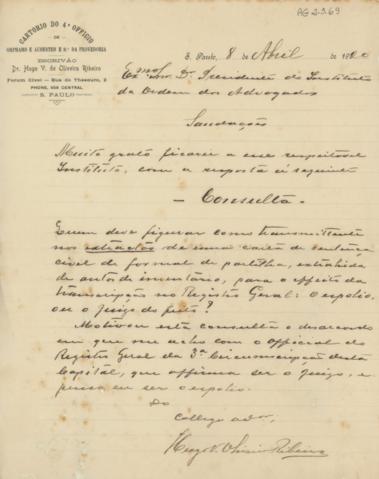 AG 2.3.69
CARTORIO DO 4º OFFICIO
DE
ORPHAMS E AUSENTES E 2º DA PROVEDORIA
ESCRIVÃO
Dr. Hugo V. de Oliveira Ribeiro
Forum Civel - Rua do Thesouro, 2
PHONE, 558 CENTRAL
S. PAULO
S. Paulo, 8 de Abril de 19
Exmo. Snr. Dr. Presidente do Instituto
da Ordem dos Advogados
Saudação
Muito grato ficarei a esse respeitavel
Instituto, com a resposta á seguinte
- Consulta -
Quem deve figurar como transmittente
nos extractos de uma carta de sentença
civel de formal de partilha, extrahida
de autos de inventario, para o effeito da
transcripção no Registro Geral: o espolio,
ou o juizo do feito?
Motivou esta consulta o desacordo
em que me acho com o Official do
Registro Geral da 3ª Circumscripção desta
Capital, que affirma ser o juizo, e
penso eu ser o espolio.
Do
collega
Hugo V. Oliveira Ribeiro